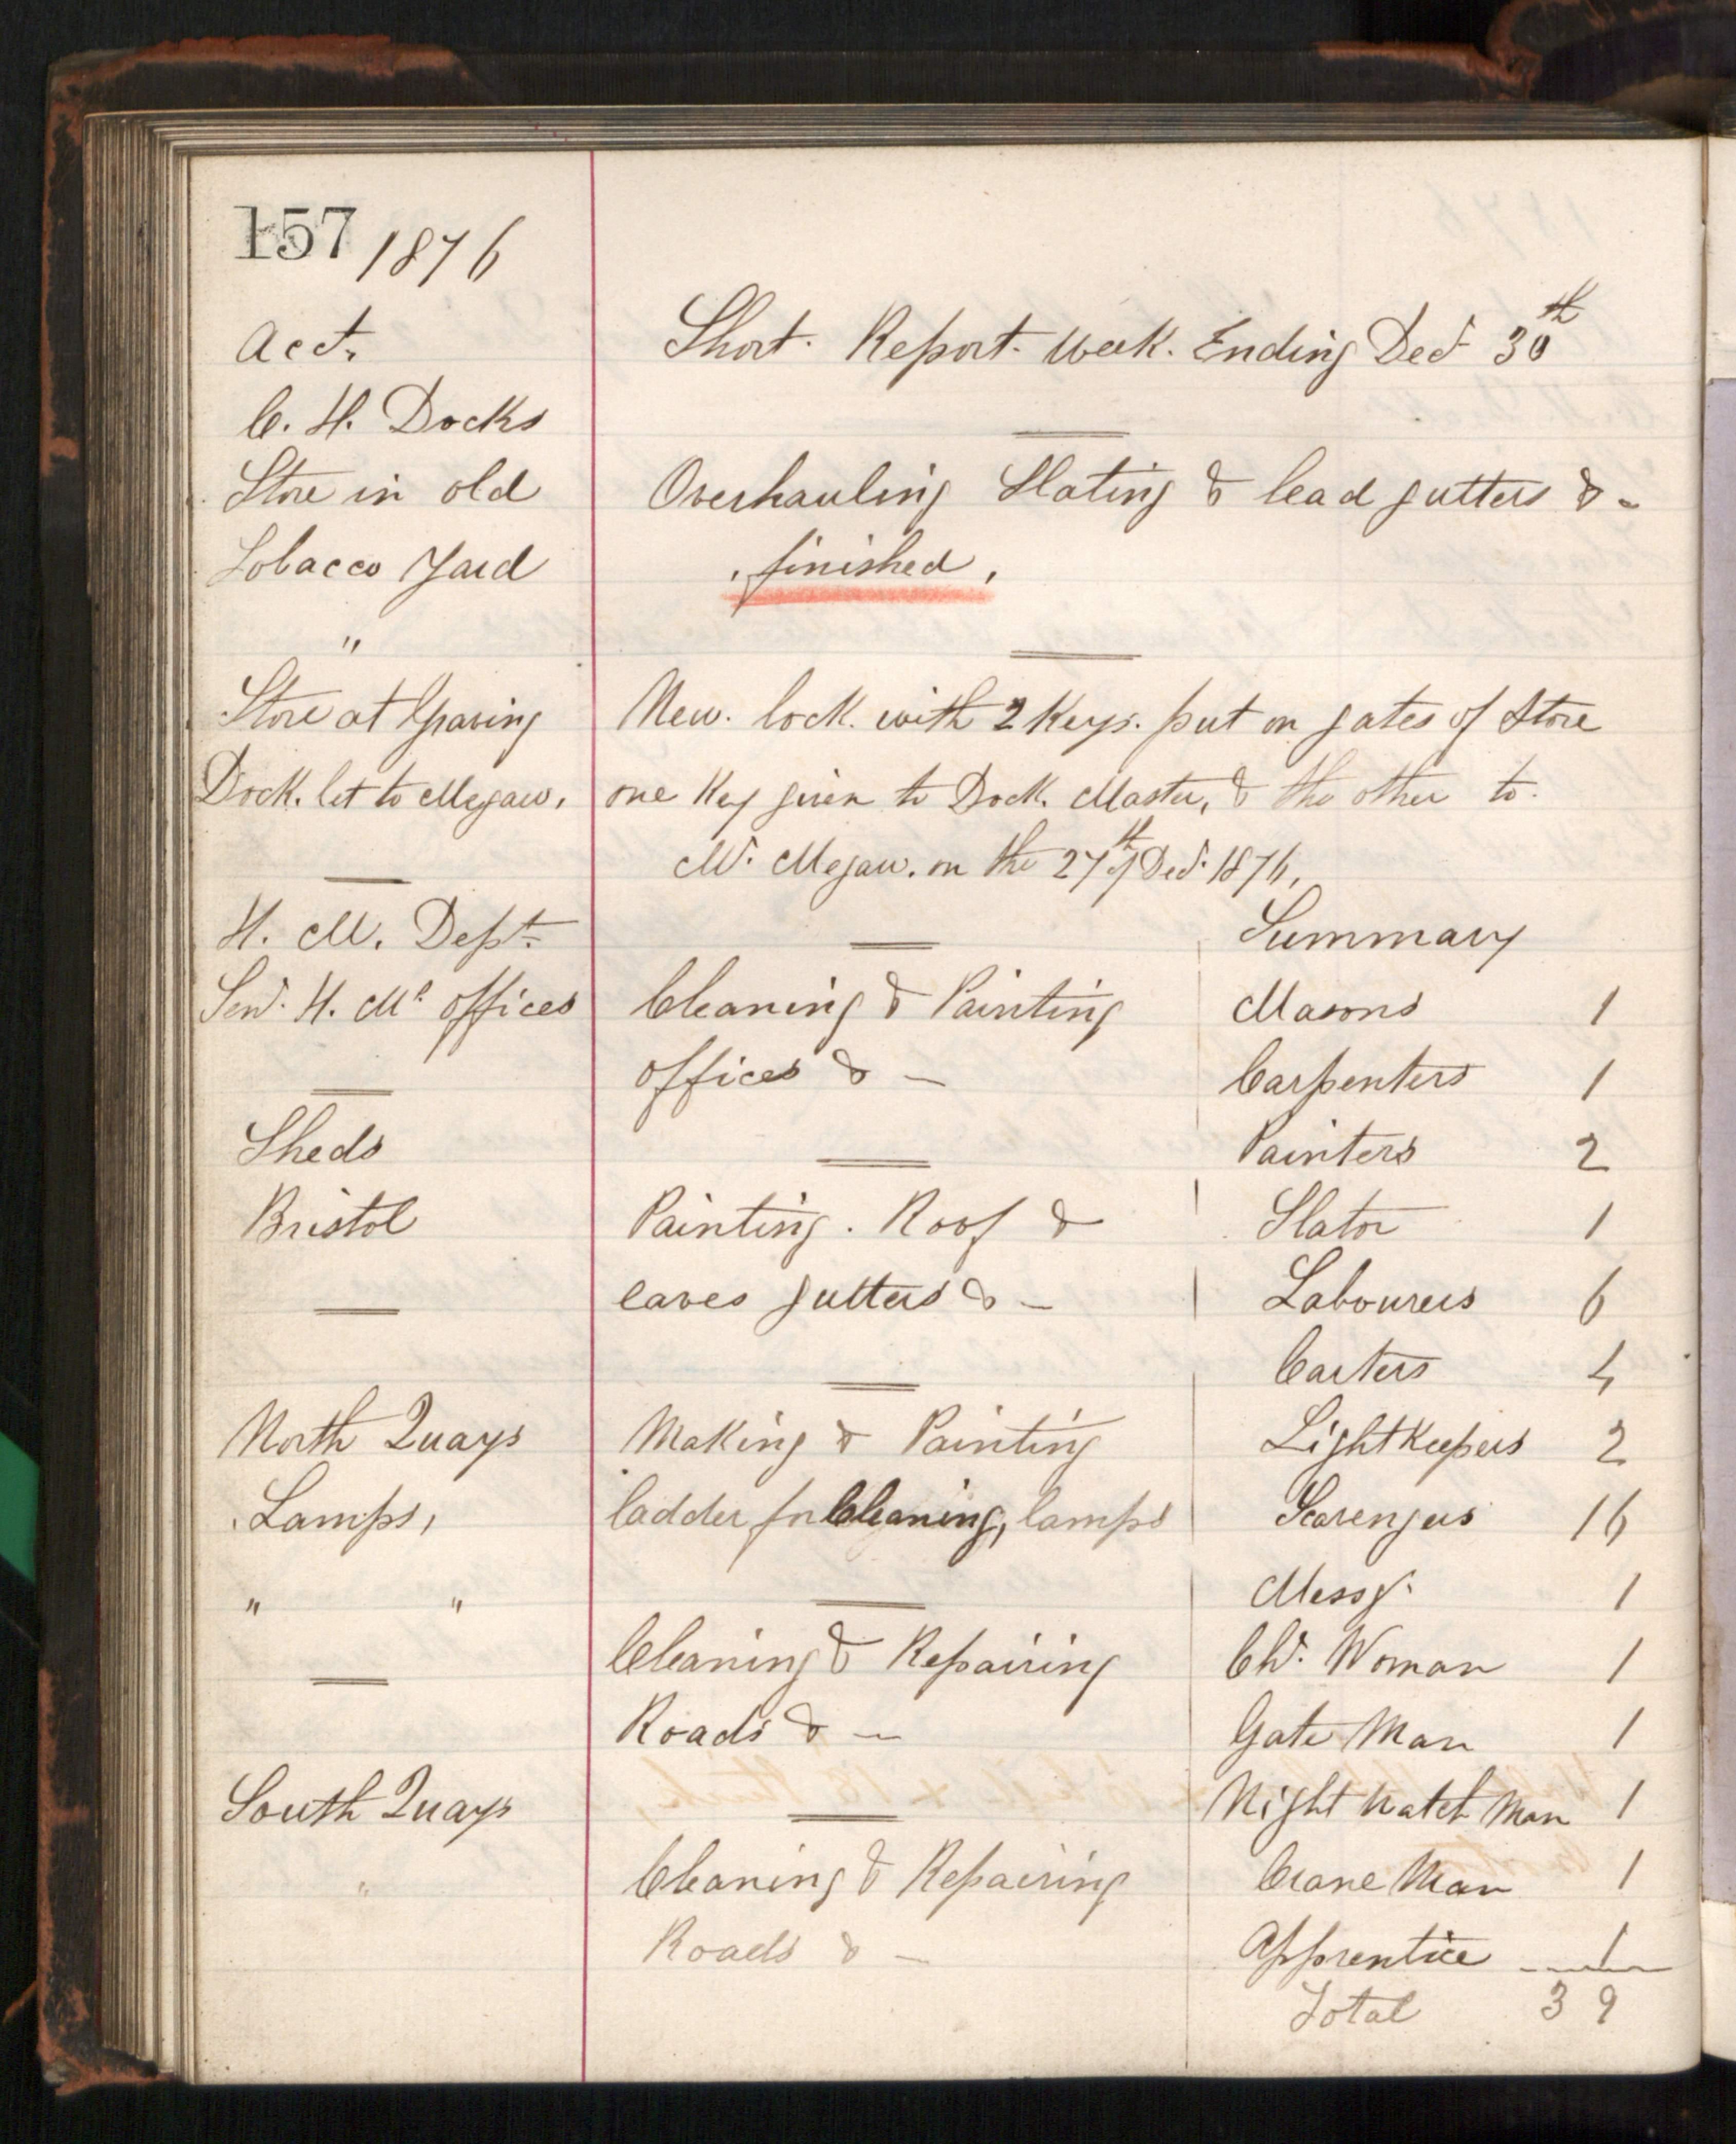 157 1876
Acct.
Short. Report. Week. Ending Decr 30th
C. H. Docks
Store in old
Tobacco Yard
"
Overhauling Slating & lead gutters & -
finished,
Store at Graving
Dock. let to Megaw,
New. lock. with 2 Keys. put on gates of Store
one Key given to Dock. Master, & the other to.
Mr. Megaw. on the 27th of Decr 1876,
H. M. Dept.
Senr. H. Ms Offices
Cleaning & Painting
offices & -
Sheds
Bristol
Painting. Roof &
eaves gutters & -
North Quays
Lamps,
Making & Painting
ladder for Cleaning, lamps
" "
Cleaning & Repairing
Roads & -
South Quays
"
Cleaning & Repairing
Roads & -
Summary
Masons 1
Carpenters 1
Painters 2
Slator 1
Labourers 6
Carters 4
Light Keepers 2
Scavengers 16
Messgr 1
Chr. Woman 1
Gate Man 1
Night Watch Man 1
Crane Man 1
Apprentice 1
Total 39